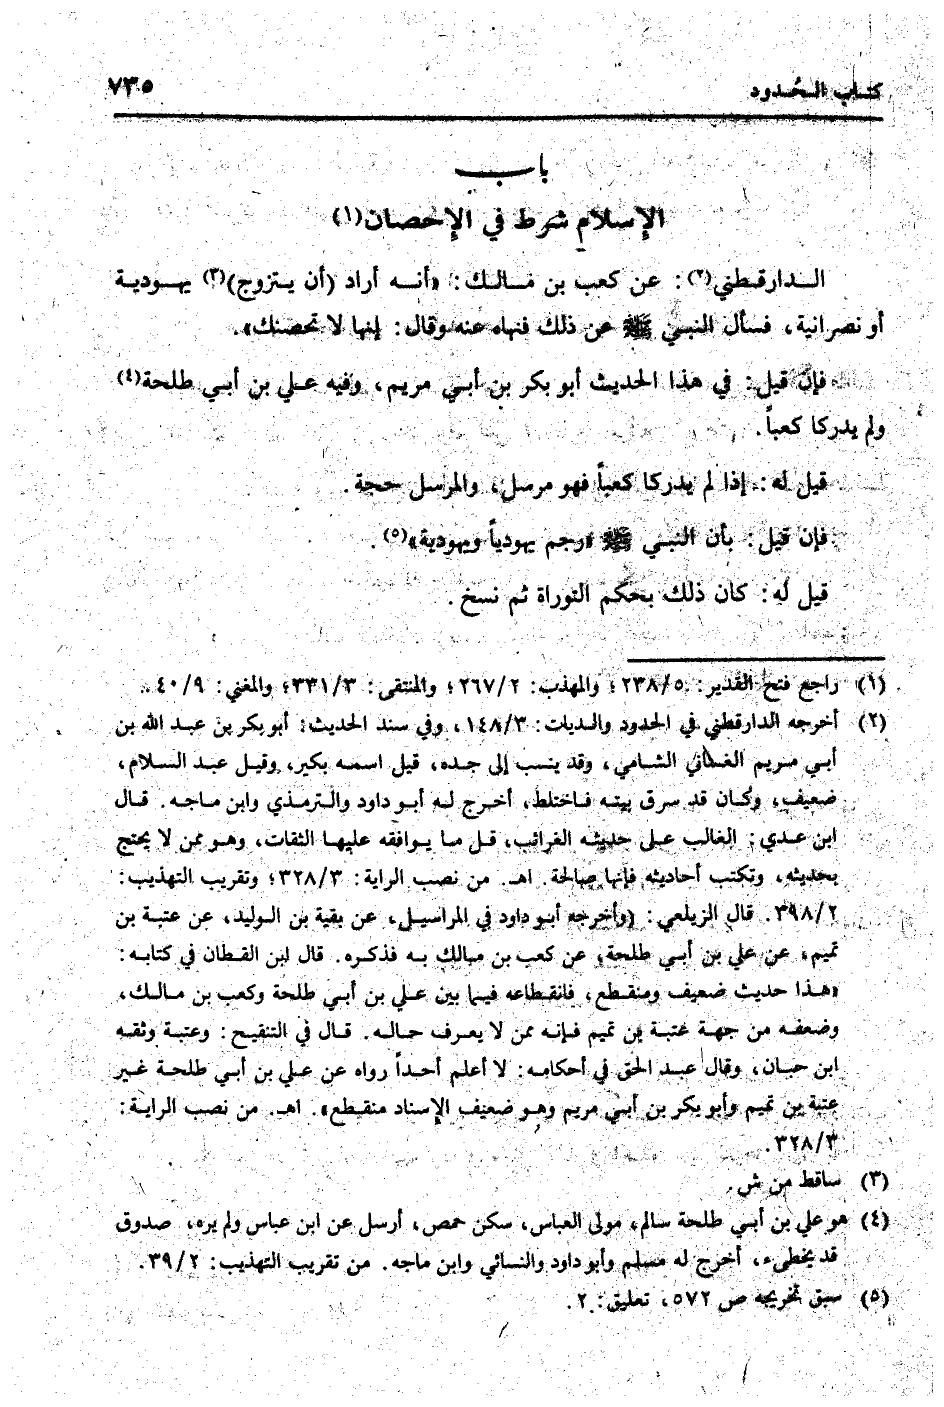 كتاب الحُدود
٧٣٥
باب
الإسلام شرط في الإحصان(١)
الدارقطني(٢): عن كعب بن مالك: «أنه أراد (أن يتزوج)(٣) يهودية
أو نصرانية، فسأل النبي ﷺ عن ذلك فنهاه عنه وقال: إنها لا تحصنك».
فإن قيل: في هذا الحديث أبو بكر بن أبي مريم، وفيه علي بن أبي طلحة(٤)
ولم يدركا كعباً.
قيل له: إذا لم يدركا كعباً فهو مرسل، والمرسل حجة.
فإن قيل: بأن النبي ﷺ «رجم يهودياً ويهودية»(٥).
قيل له: كان ذلك بحكم التوراة ثم نسخ.
(١) راجع فتح القدير: ٢٣٨/٥؛ والمهذب: ٢٦٧/٢؛ والمنتقى: ٣٣١/٣؛ والمغني: ٤٠/٩.
(٢) أخرجه الدارقطني في الحدود والديات: ١٤٨/٣، وفي سند الحديث: أبو بكر بن عبد الله بن
أبي مريم الغساني الشامي، وقد ينسب إلى جده، قيل اسمه بكير، وقيل عبد السلام،
ضعيف، وكان قد سرق بيته فاختلط، أخرج له أبو داود والترمذي وابن ماجه. قال
ابن عدي: الغالب على حديثه الغرائب، قل ما يوافقه عليها الثقات، وهو ممن لا يحتج
بحديثه، وتكتب أحاديثه فإنها صالحة. اهـ. من نصب الراية: ٣٢٨/٣؛ وتقريب التهذيب:
٣٩٨/٢. قال الزيلعي: (وأخرجه أبو داود في المراسيل، عن بقية بن الوليد، عن عتبة بن
تميم، عن علي بن أبي طلحة، عن كعب بن مالك به فذكره. قال ابن القطان في كتابه:
«هذا حديث ضعيف ومنقطع، فانقطاعه فيما بين علي بن أبي طلحة وكعب بن مالك،
وضعفه من جهة عتبة بن تميم فإنه ممن لا يعرف حاله. قال في التنقيح: وعتبة وثقه
ابن حبان، وقال عبد الحق في أحكامه: لا أعلم أحداً رواه عن علي بن أبي طلحة غير
عتبة بن تميم وأبو بكر بن أبي مريم وهو ضعيف الإسناد منقطع». اهـ. من نصب الراية:
٣٢٨/٣.
(٣) ساقط من ش.
(٤) هو علي بن أبي طلحة سالم، مولى العباس، سكن حمص، أرسل عن ابن عباس ولم يره، صدوق
قد يخطىء، أخرج له مسلم وأبو داود والنسائي وابن ماجه. من تقريب التهذيب: ٣٩/٢.
(٥) سبق تخريجه ص ٥٧٢، تعليق: ٢.